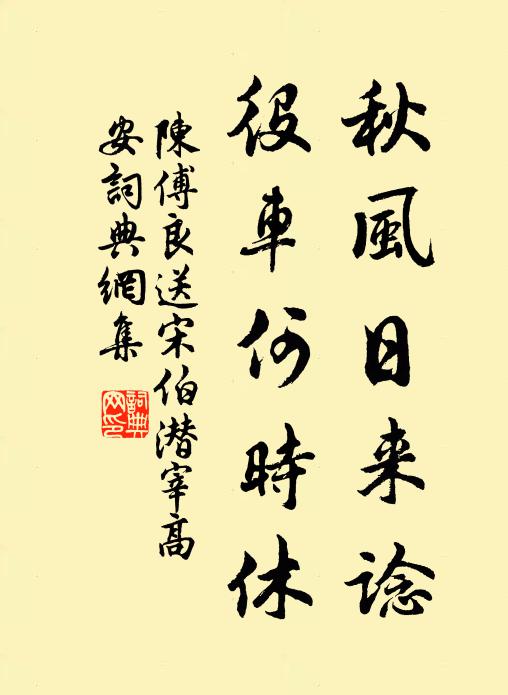 秋風日来谂
役車何時休
陳傅良送宋伯潜宰高
安詞典網集
詞典
网印